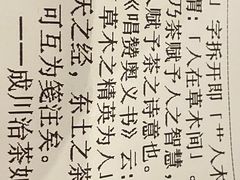 」字拆开即「艹人木
谓:「人在草木间」。
乃茶赋予人之智慧,
人赋予茶之诗意也。
《唱赞奥义书》云:
草木之精英为人」
天之经,东土之茶
可互为笺注矣。
——成川治茶如